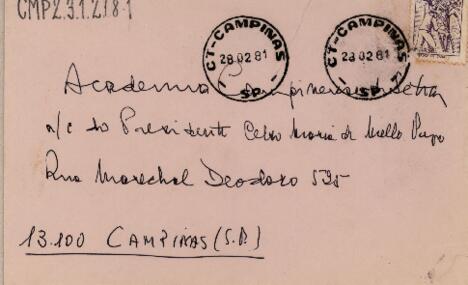 CMP2.3.1.218-1
CT-CAMPINAS
28.02 81
SP.
CT-CAMPINAS
28.02 81
SP.
Academia Campinense Letras
a/c do Presidente Celso Maria de Mello Pupo
Rua Marechal Deodoro 525
13.100 CAMPINAS (S.P.)